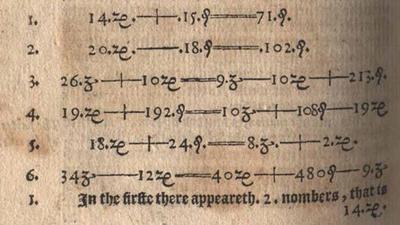 1. 14.ꝛe.—+—.15.ϙ═══71.ϙ.
2. 20.ꝛe.———.18.ϙ═══.102.ϙ.
3. 26.ʒ—+—10ꝛe═══9.ʒ——10ꝛe—+—213.ϙ.
4. 19.ꝛe—+—192.ϙ═══10ʒ—+—108ϙ——19ꝛe
5. 18.ꝛe—+—24.ϙ.═══8.ʒ.—+—2.ꝛe.
6. 34ʒ———12ꝛe═══40ꝛe—+—480ϙ——9.ʒ
1. In the firſte there appeareth. 2. nombers, that is
14.ꝛe.